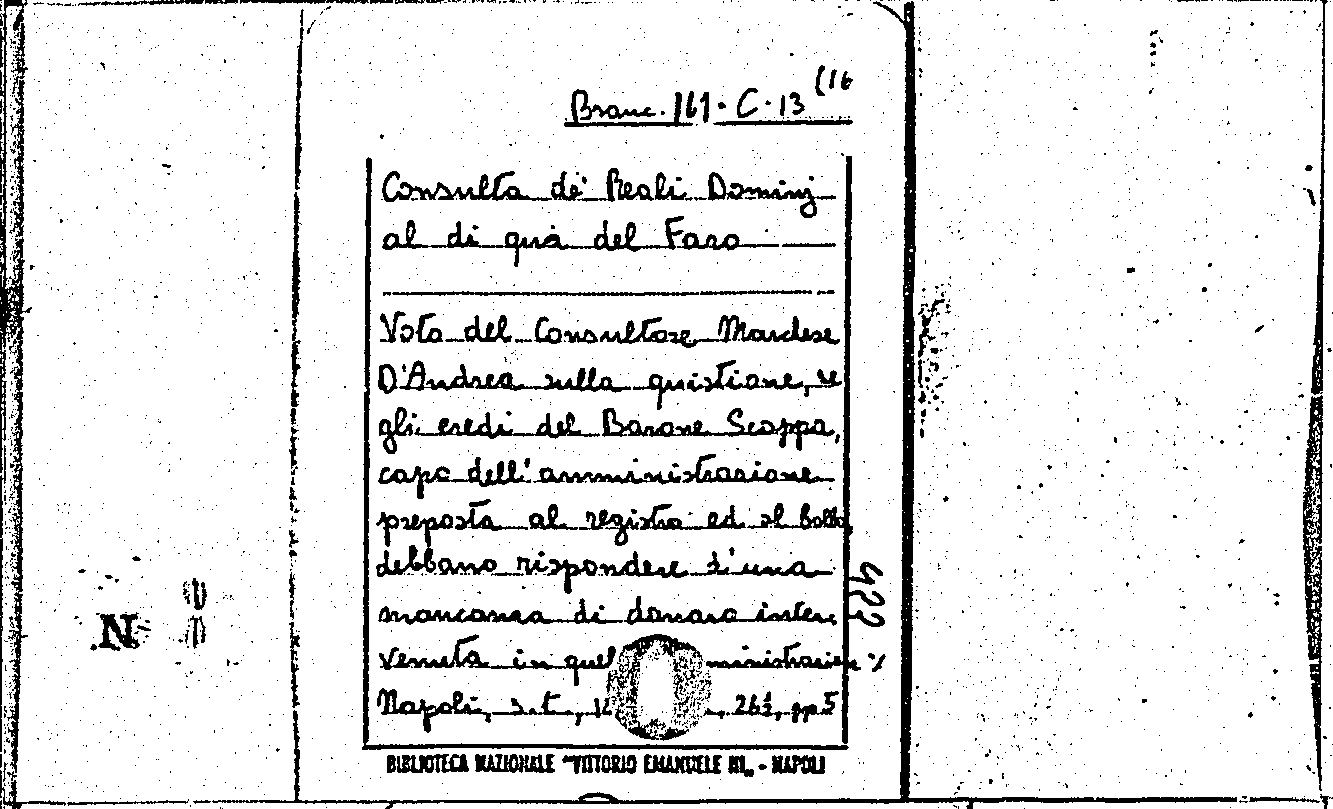 Branc. 161. C. 13 (16
Consulta de' Reali Dominj
al di quà del Faro
Voto del Consultore Marchese
D'Andrea sulla quistione, se
gli eredi del Barone Scoppa,
capo dell'amministrazione
preposta al registro ed al bollo,
debbano rispondere d'una
mancanza di danaro inter
venuta in quel ministrazione %
Napoli, s.t., pp. 5
422
N
BIBLIOTECA NAZIONALE "VITTORIO EMANUELE III" - NAPOLI